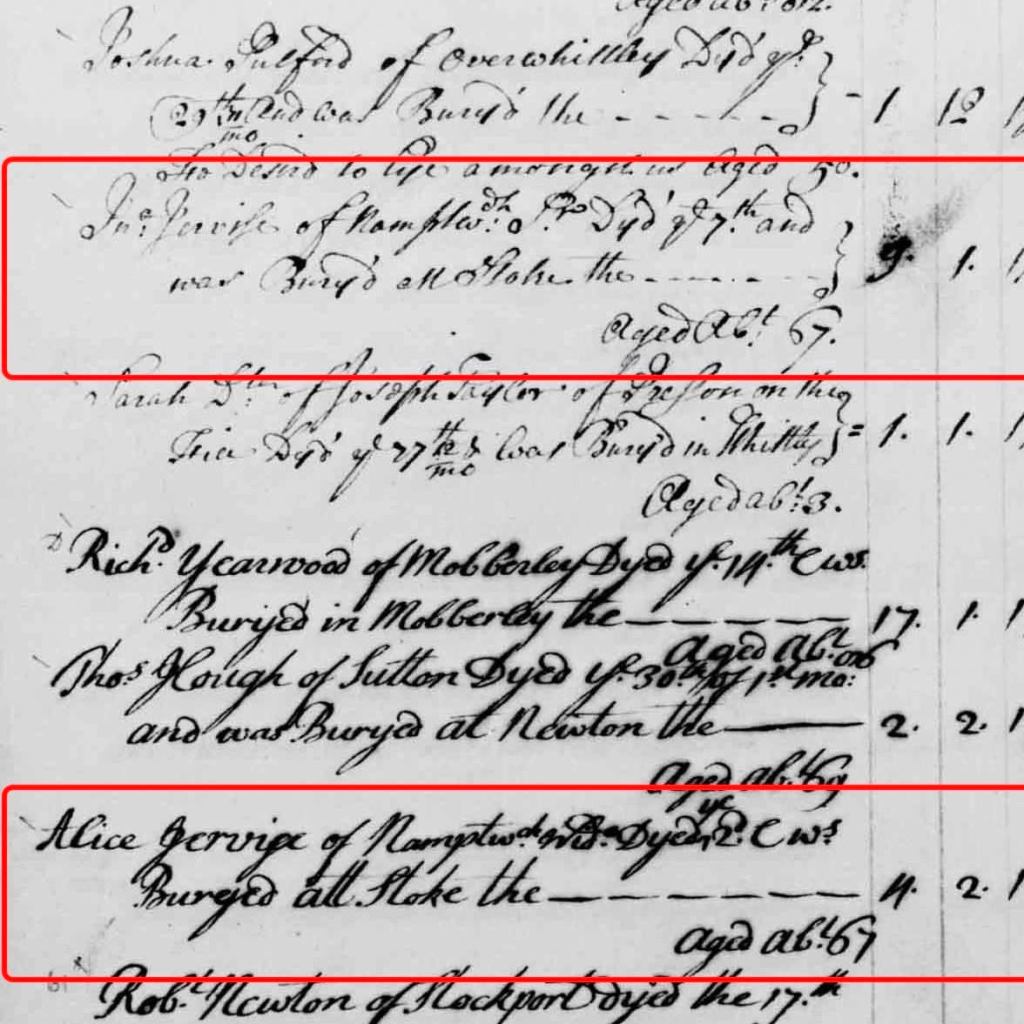 Aged abt 82.
Joshua Pulford of Overwhittley Dy'd ye
29th And was Bury'd the - - - - - 1 12
mo
Desir'd to lye amongst us Aged 50.
Jno Jervise of Namptwch Dy'd ye 7th and
was Bury'd att Stoke the - - - - - 9. 1.
Aged Abt 67.
Sarah Dtr of Joseph Taylor of Preston on the
Dy'd ye 27th & was Bury'd in Whitley = 1. 1.
mo
Aged abt 3.
Richd Yearwood of Mobberley Dyed ye 14th & ws
Buryed in Mobberley the — — — — — 17. 1.
Aged abt
Thos Hough of Sutton Dyed ye 30th of 1st mo:
and was Buryed at Newton the — 2. 2.
Aged abt 69
Alice Jervise of Namptwch Dyed ye 2d & ws
Buryed att Stoke the — — — — — — 4. 2.
Aged abt 67
Robt Newton of Stockport dyed the 17th